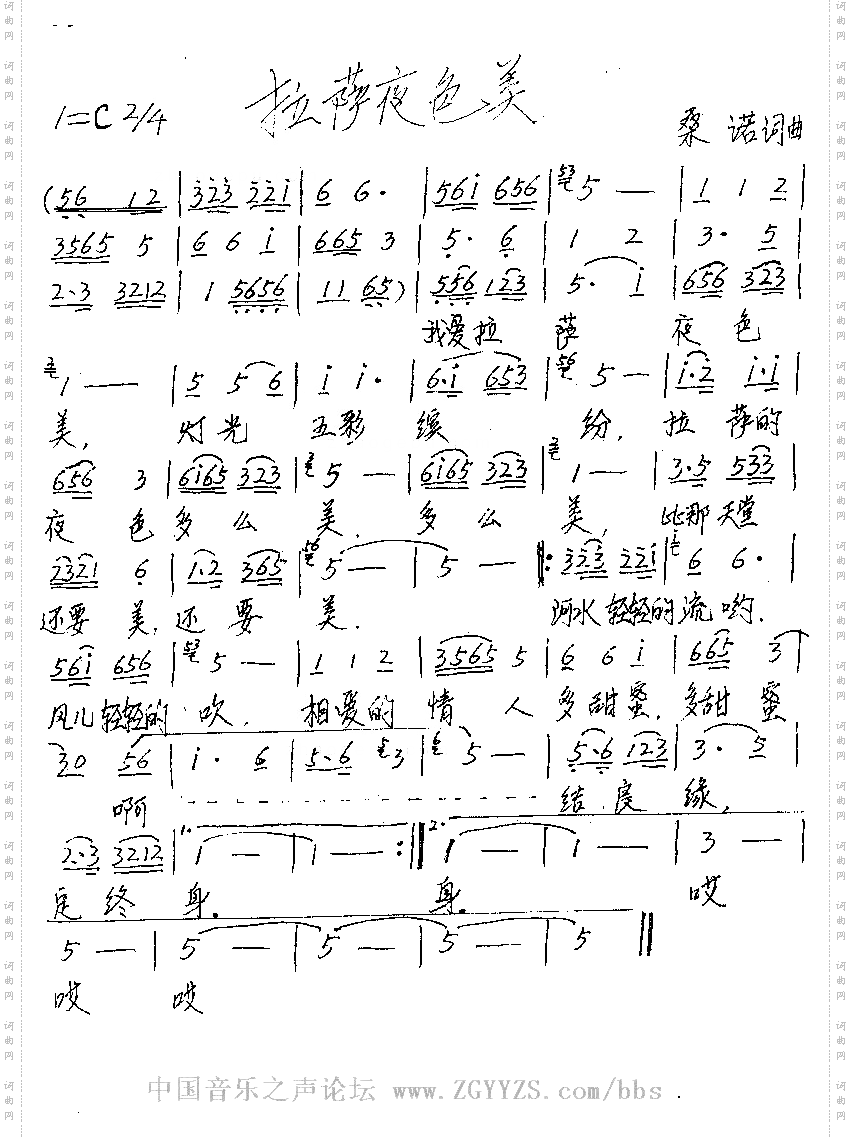 拉萨夜色美
1=C 2/4
桑 诺词曲
(56 12 | 323 221 | 6 6· | 561 656 | 5 — | 1 1 2 |
3565 5 | 6 6 1 | 665 3 | 5· 6 | 1 2 | 3· 5 |
2·3 3212 | 1 5656 | 11 65) | 556 123 | 5· 1 | 656 323 |
我爱拉 萨 夜 色
1 — | 5 5 6 | 1 1· | 6·1 653 | 5 — | 1·2 1·1 |
美, 灯光 五彩 缤 纷, 拉 萨的
656 3 | 6165 323 | 5 — | 6165 323 | 1 — | 3·5 533 |
夜 色 多 么 美, 多 么 美, 比那 天堂
2321 6 | 1·2 365 | 5 — | 5 — |: 323 221 | 6 6· |
还要 美, 还 要 美. 河水轻轻的流 哟.
561 656 | 5 — | 1 1 2 | 3565 5 | 6 6 1 | 665 3 |
风儿轻轻的 吹, 相爱的 情 人 多甜蜜, 多甜 蜜
30 56 | 1· 6 | 5·6 3 | 5 — | 5·6 123 | 3· 5 |
啊 结 良 缘,
2·3 3212 | 1. 1 — | 1 — :| 2. 1 — | 1 — | 3 — |
定 终 身. 身. 哎
5 — | 5 — | 5 — | 5 — | 5 ||
哎 哎
中国音乐之声论坛 www.ZGYYZS.com/bbs
词曲网